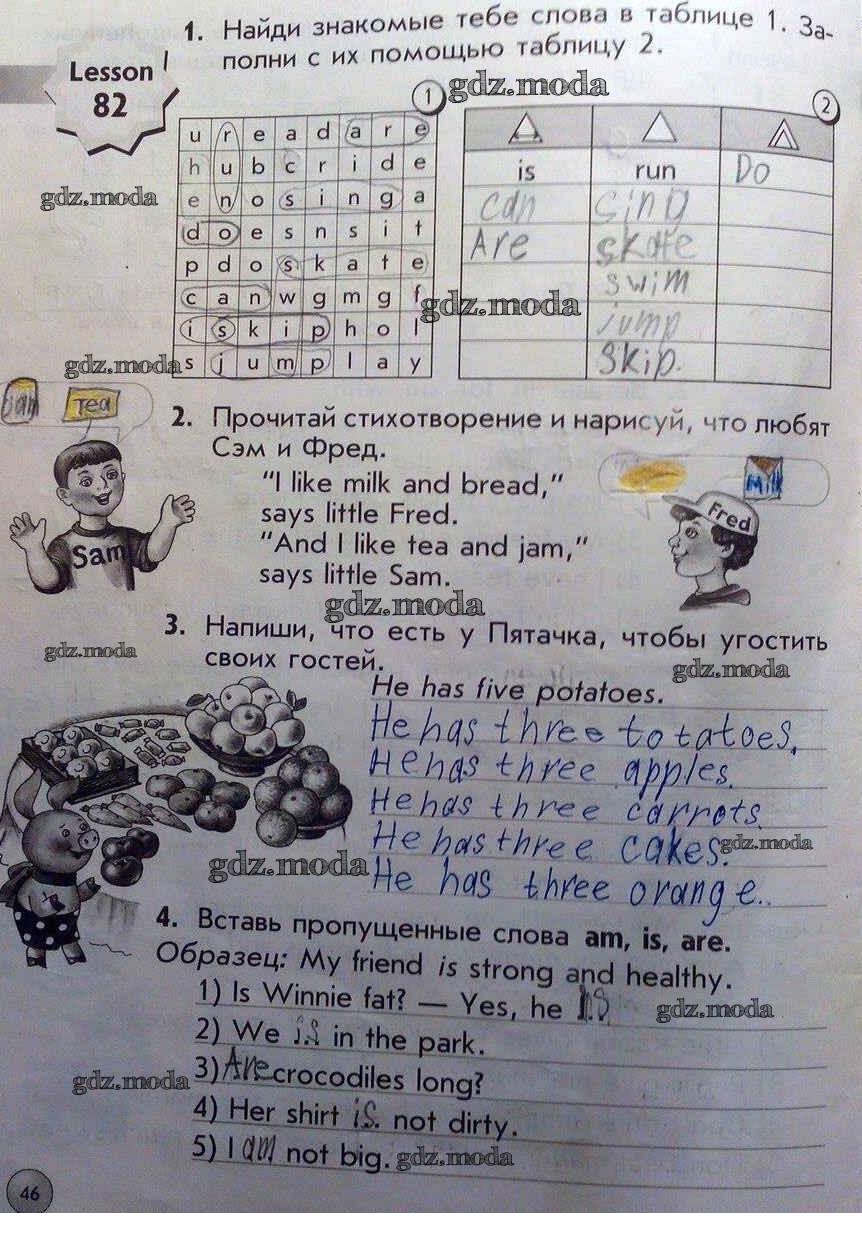 1. Найди знакомые тебе слова в таблице 1. За-
полни с их помощью таблицу 2.
Lesson
82
gdz.moda
1
2
u r e a d a r e
h u b c r i d e
e n o s i n g a
d o e s n s i t
p d o s k a t e
c a n w g m g f
i s k i p h o l
s j u m p l a y
is run Do
can sing
Are skate
swim
jump
Skip.
gdz.moda
gdz.moda
gdz.moda
jam tea
2. Прочитай стихотворение и нарисуй, что любят
Сэм и Фред.
"I like milk and bread,"
says little Fred.
"And I like tea and jam,"
says little Sam.
Sam
Milk
Fred
gdz.moda
3. Напиши, что есть у Пятачка, чтобы угостить
своих гостей.
gdz.moda
gdz.moda
He has five potatoes.
He has three totatoes.
He has three apples.
He has three carrots.
He has three cakes.
gdz.moda
He has three orange..
gdz.moda
4. Вставь пропущенные слова am, is, are.
Образец: My friend is strong and healthy.
1) Is Winnie fat? — Yes, he is
gdz.moda
2) We is in the park.
3) Are crocodiles long?
gdz.moda
4) Her shirt is. not dirty.
5) I am not big.
gdz.moda
46